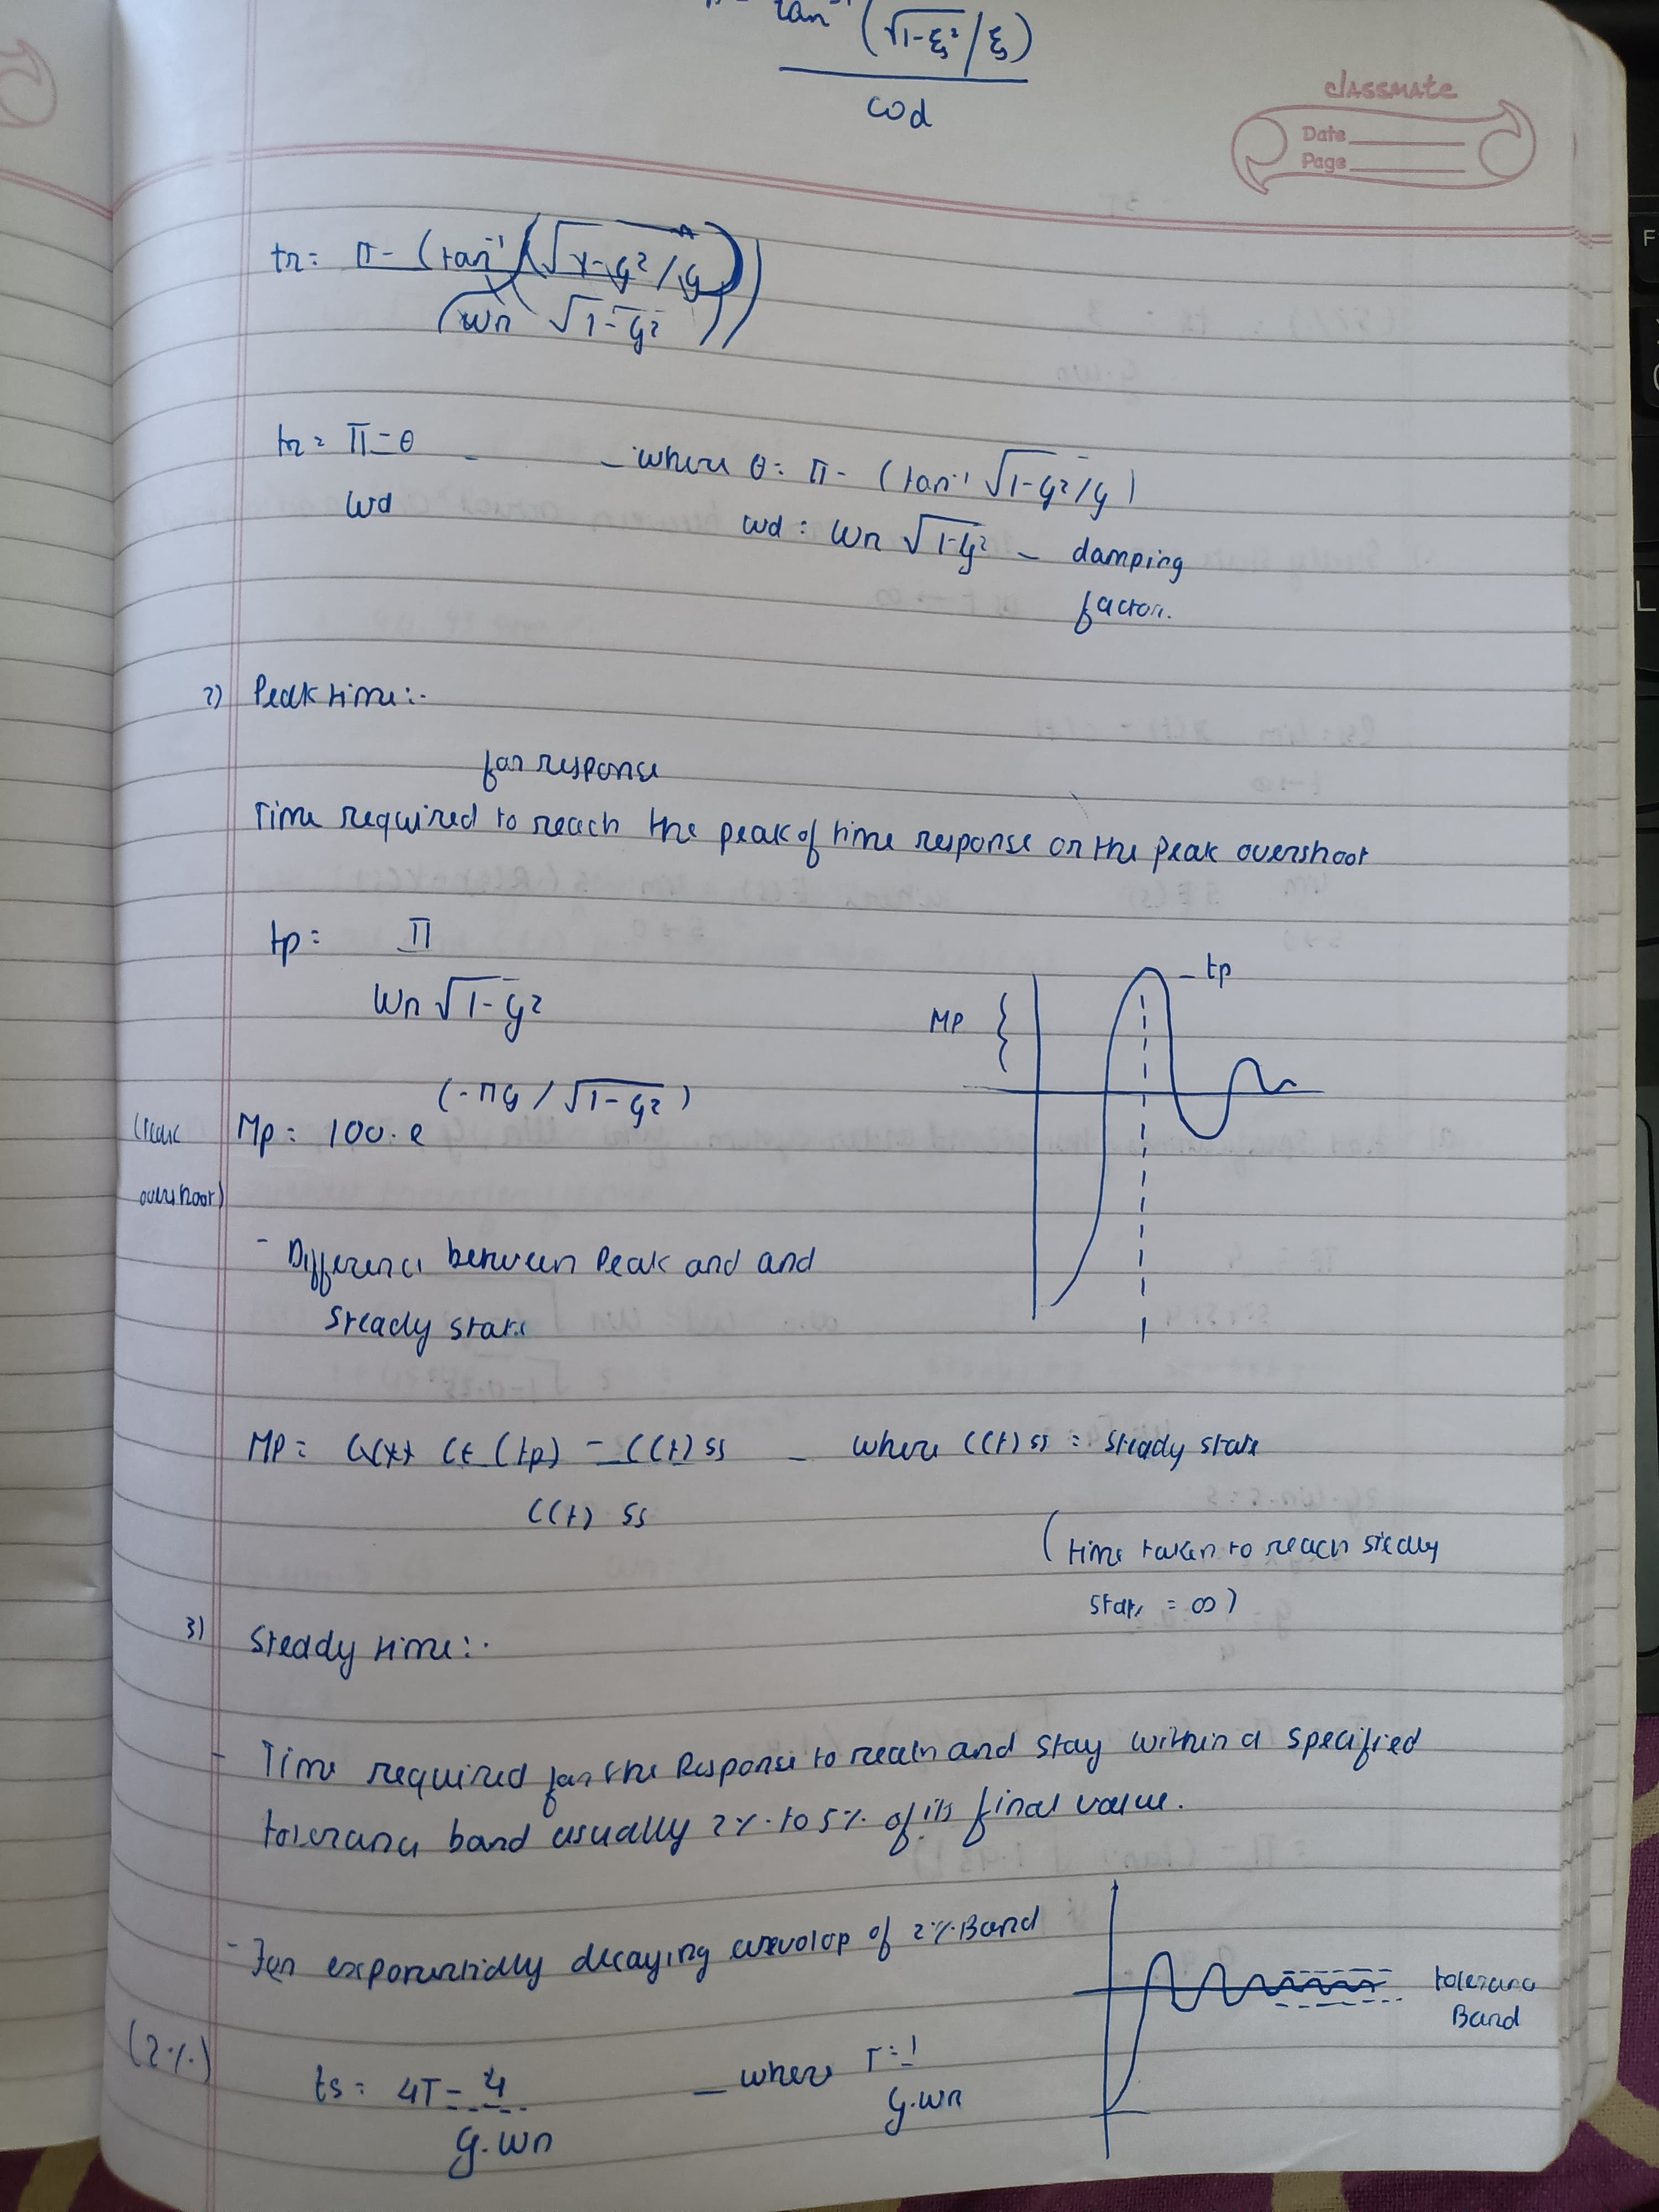 tan⁻¹ (√1-ξ² / ξ)
ωd
classmate
Date
Page
tr = π - (tan⁻¹ (√1-ξ² / ξ))
(wn √1-ξ²)
tr = π - θ — where θ = π - (tan⁻¹ √1-ξ²/ξ)
wd
wd = wn √1-ξ² — damping
factor.
2) Peak time :-
for response
Time required to reach the peak of time response or the peak overshoot
tp = π
wn √1-ξ²
tp
MP
(-πξ / √1-ξ²)
Mp = 100. e
(Peak
overshoot)
- Difference between Peak and and
steady state
MP = Ct (tp) - C(t) ss — where C(t) ss = steady state
C(t) ss
(time taken to reach steady
state = ∞)
3) Steady time :-
- Time required for the Response to reach and stay within a specified
tolerance band usually 2% to 5% of its final value.
- For exponentially decaying envolop of 2% Band
tolerance
Band
(2%)
ts = 4T = 4 — where T = 1
ξ.wn
ξ.wn